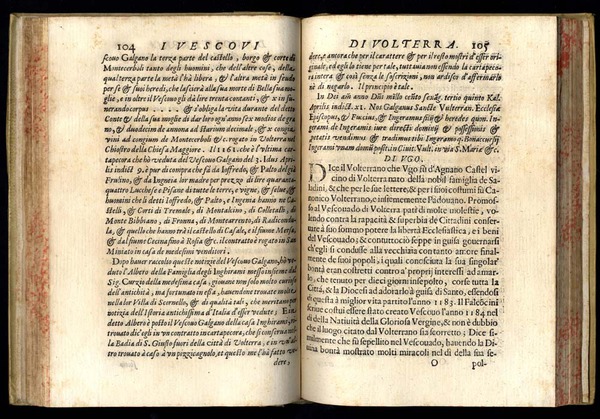 104 I VESCOVI
scouo Galgano la terza parte del castello, borgo & corte di
Montecerboli tanto degli huomini, che dell'altre cose, della
qual terza parte la metà l'hà libera, & l'altra metà in feudo
per se & suoi heredi, che lascierà alla sua morte di Bella sua mo-
glie, e in oltre il Vescouo gli dà lire trenta contanti, & x in su-
trandocorpus .... & s'obliga in vita durante del detto
Conte & della sua moglie di dar loro ogni anno sex modios de gra
no, & duodecim de annona ad starium decimale, & x congia,
vini ad congium de Montecerboli & c. rogato in Volterra nel
Chiostro della Chiesa Maggiore. Il 1161. che è l'vltima car-
tapecora che hò veduta del Vescouo Galgano, del 3. Idus Apri-
lis indict. 9. è pur di compra che fà da Ioffredo, & Palto del già
Pruino, & da Ingeia lor madre per prezzo di lire quaran-
quattro Lucchese e Pisane di tutte le terre, vigne, & selue, &
huomini che li detti Ioffredo, & Palto, e Ingenia hanno ne Ca
stelli, & Corti di Tremale, di Montalcino, di Colletalli, di
Monte Bibbiano, di Fronna, di Montarrento, di Radicondo-
la, & quelle che hanno trà il castello di Casale, e il fiume Mersa,
& dal fiume Cecina fino à Rosia & c. il contratto è rogato in San
Miniato in casa de medesimi venditori.
Dopo hauer raccolto queste notizie del Vescouo Galgano, hò ve-
duto l'Albero della Famiglia degli Inghirami messo insieme dal
Sig. Curzio della medesima casa; giouane non solo molto curioso
dell'antichità, ma fortunato in essa, hauendone trouate molte
nella lor Villa di Scornello, & di qualità tali, che meritano per
notizia dell'Istoria antichissima d'Italia d'esser vedute; E in
detto Albero è posto il Vescouo Galgano della casa Inghirami,
trouato dic'egli in vn contratto in cartapecora, che si conserua nel
la Badia di S. Giusto fuori della città di Volterra, e in vn' al-
tro trouato à caso à vn pizzicagnolo, et questo me l'hà fatto ve-
dere,
DI VOLTERRA. 105
dere, e ancora che per il carattere & per il resto mostri d'esser ori-
ginale, ed egli lo tiene per tale, tuttauia non essendo la cartapeco-
ra intera & così senza le suscrizioni, non ardisco d'affermarlo
nè di negarlo. Il principio è tale.
In Dei nomine amen anno Dñi millo cento sexag. tertio quinto Kal.
Aprilis indict. XI. Nos Galganus Sanctæ Vulterran. Ecclesiæ
Episcopus, & Puccius, & Ingeramus filij & heredes quōn. In-
gerami de Ingeramis iure directi dominij & possessionis &
petatis vendimus & tradimus tibi Ingeramo q. Bonaccursij
Ingerami vnam domū posit. in Ciuit. Vult. in via S. Mariæ & c.
DI VGO.
DIce il Volterrano che Vgo fù d'Agnano Castel
vicino di Volterra nato della nobil famiglia de Sa-
ladini, & che per le sue lettere, & per i suoi costumi fù Ca-
nonico Volterrano, e insiememente Padouano. Promos-
so al Vescouado di Volterra patì di molte molestie, vo-
lendo contra la rapacità & superbia de Cittadini conser-
uare à suo sommo potere la libertà Ecclesiastica, e i beni
del Vescouado; & contuttociò seppe in guisa gouernarsi
ch'egli si condusse alla vecchiaia con tanto amore final-
mente de suoi popoli, i quali conosciuta la sua singolar
bontà eran costretti contro a' proprij interessi ad amar-
lo, che tenuto per dieci giorni insepolto, corse tutta la
Città, & la Diocesi ad adorarlo à guisa di Santo, essendosi
di questa à miglior vita partito l'anno 1183. Il Falcōcini
scriue costui essere stato creato Vescouo l'anno 1184 nel
dì della Natiuità della Gloriosa Vergine, & non è dubbio
che al luogo citato dal Volterrano sia scorretto; Dice si-
milmente che fù sepellito nel Vescouado, hauendo la Di-
uina bontà mostrato molti miracoli nel dì della sua se-
O pol-